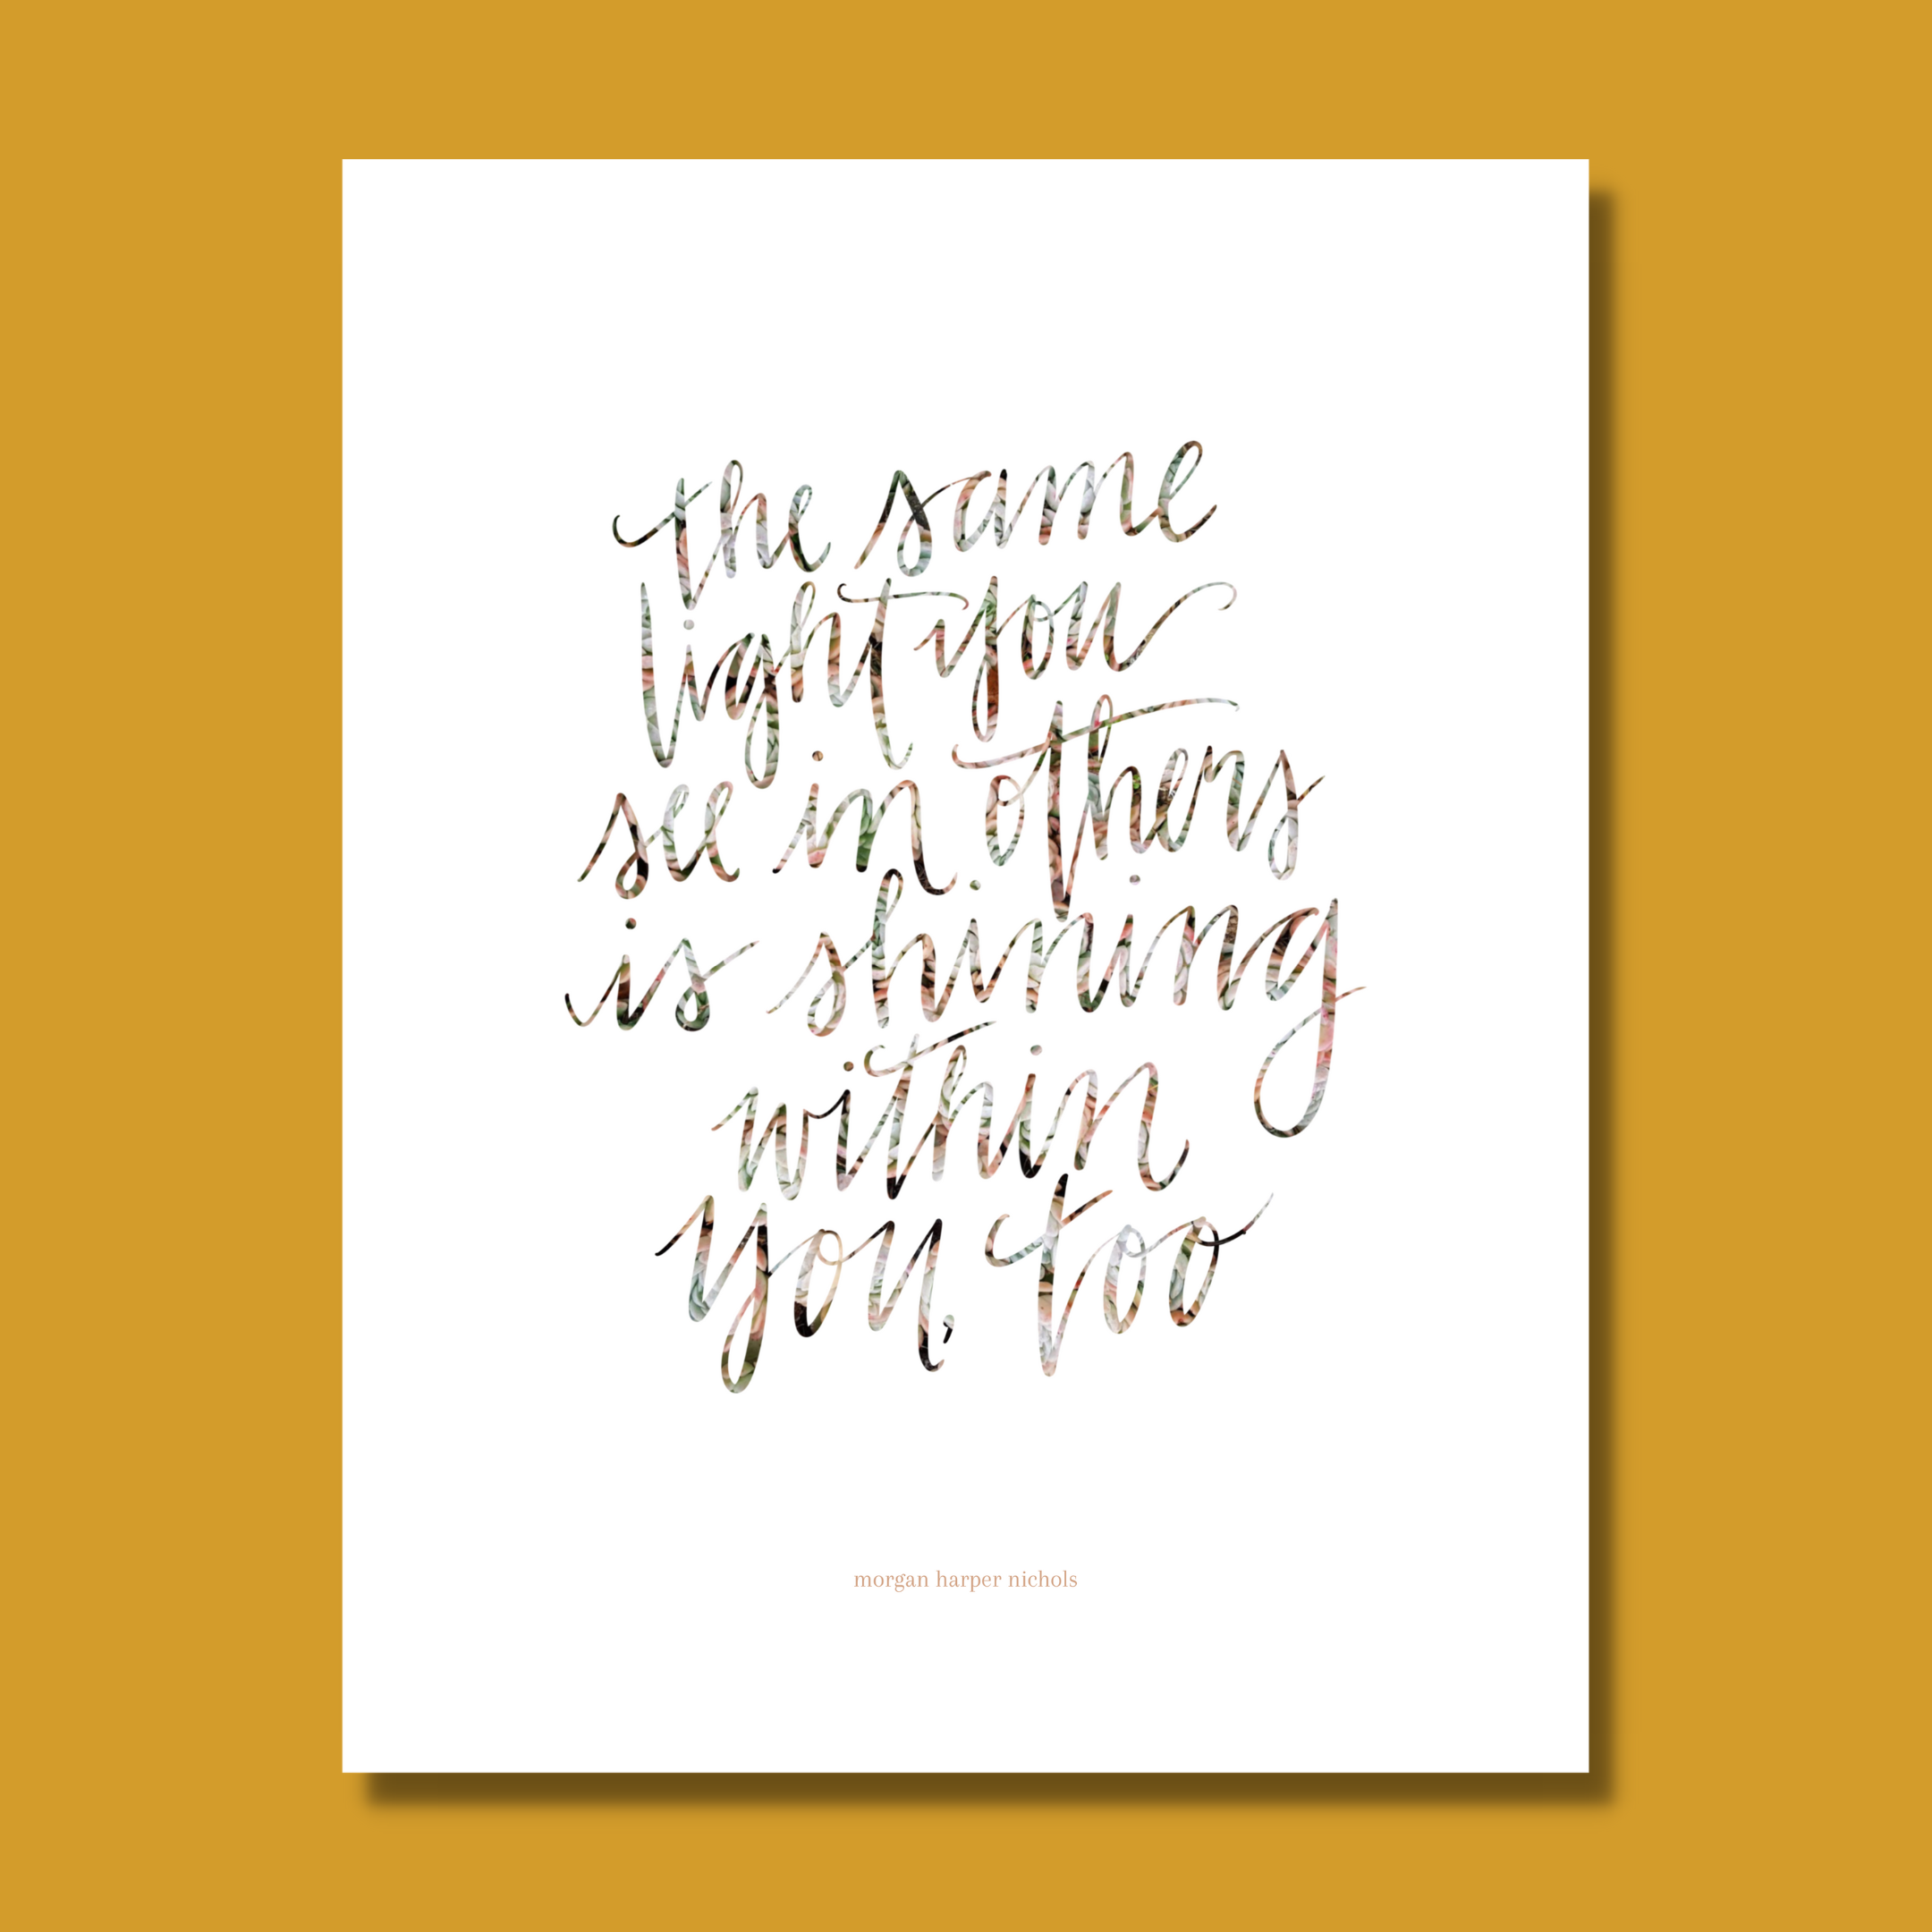 the same
light you
see in others
is shining
within
you, too
morgan harper nichols